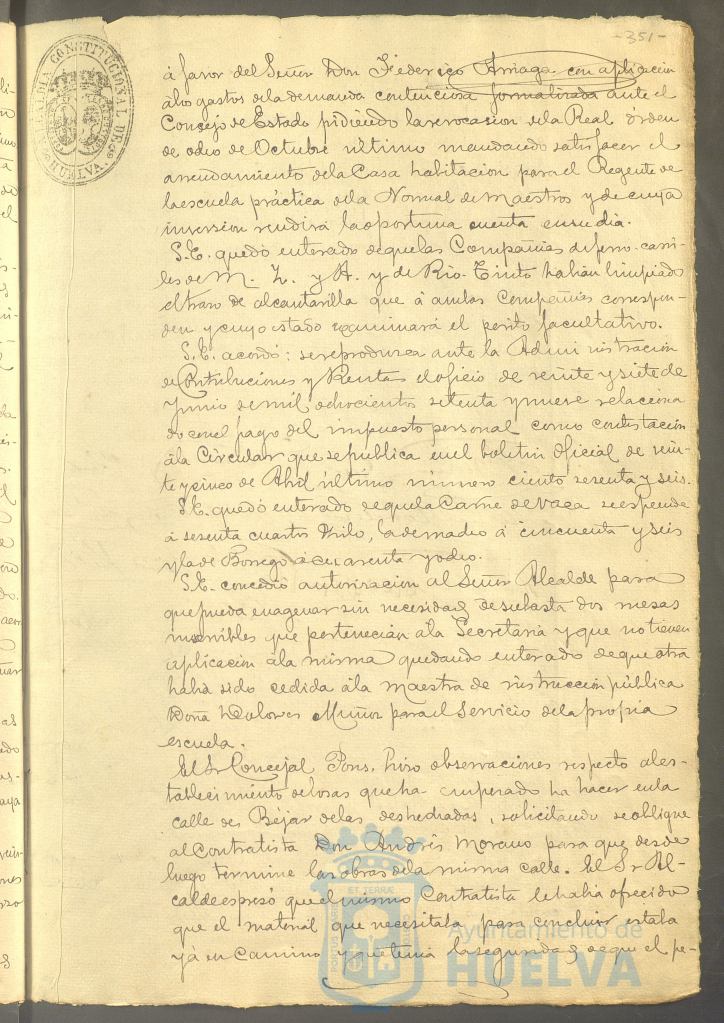 -351-
ALCALDIA CONSTITUCIONAL DE
HUELVA.
á favor del Señor Don Federico Arriaga con aplicacion
á los gastos de la demanda contenciosa formalizada ante el
Concejo de Estado pidiendo la revocasion de la Real Órden
de ocho de Octubre último mandando satisfacer el
arrendamiento de la Casa habitacion para el Regente de
la escuela práctica de la Normal de Maestros y de cuya
inversion rendirá la oportuna cuenta en su dia.
S.E. quedó enterado de que las Compañias de ferro-carri-
les de M. Z. y A. y de Rio-Tinto habian limpiado
el trozo de alcantarilla que á ambas Compañias correspon-
den y cuyo estado examinará el perito facultativo.
S.E. acordó: se reproduzca ante la Administracion
de Contribuciones y Rentas el oficio de veinte y siete de
Junio de mil ochocientos setenta y nueve relaciona
do con el pago del impuesto personal como contestacion
á la Circular que se publica en el boletin oficial de vein-
te y cinco de Abril último número ciento sesenta y seis.
S.E. quedó enterado de que la Carne de Vaca se espende
á sesenta cuartos Kilo, la de macho á cincuenta y seis
y la de Borrego á cuarenta y ocho.
S.E. concedió autorizacion al Señor Alcalde para
que pueda enagenar sin necesidad de subasta dos mesas
inservibles que pertenecian á la Secretaria y que no tienen
aplicacion á la misma quedando enterado de que otra
habia sido cedida á la maestra de instruccion pública
Doña Dolores Muñoz para el servicio de la propia
escuela.
El Sr Concejal Pons, hizo observaciones respecto al es-
tablecimiento de losas que ha empezado ha hacer en la
calle de Béjar de las deshechadas, solicitando se oblique
al Contratista Don Andrés Morano para que desde
luego termine las obras de la misma calle. El Sr Al-
calde espresó que el mismo Contratista le habia ofrecido
que el material que necesitaba para concluir estaba
yá en Camino y que tenia la seguridad de que el pe-
Ayuntamiento de
HUELVA